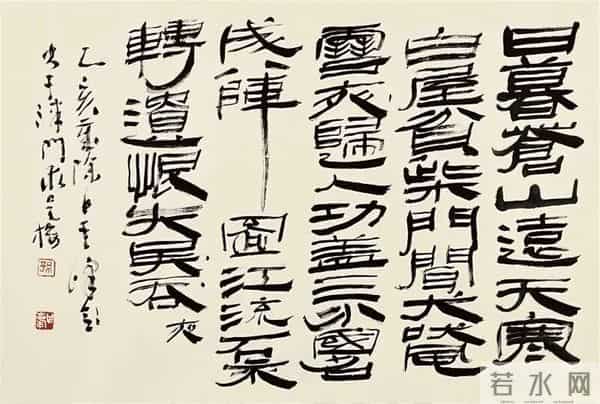 日暮蒼山遠天寒
白屋貧柴門聞犬
雪夜歸人功蓋三分國名
成陣圖江流石不
轉遺恨失吳吞
乙亥歲除日其峰
津門求是樓
若水网